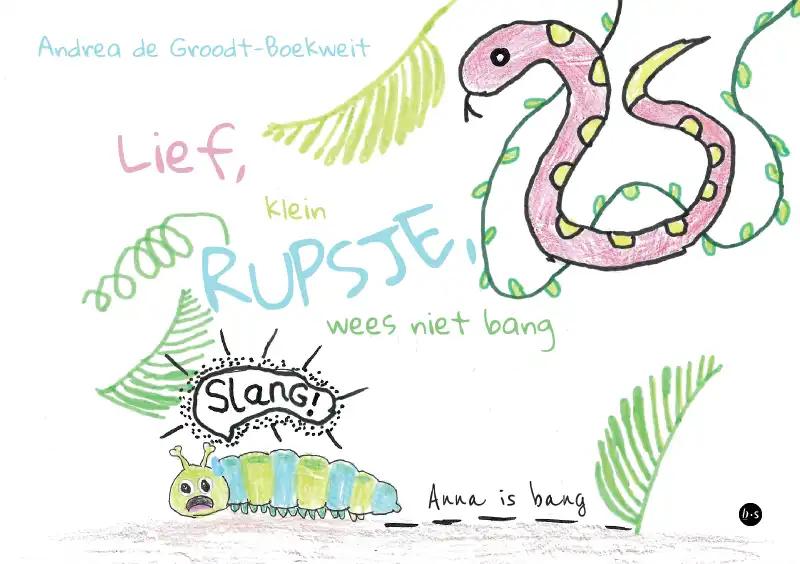 Andrea de Groodt-Boekweit
Lief,
klein
RUPSJE,
wees niet bang
Slang!
Anna is bang